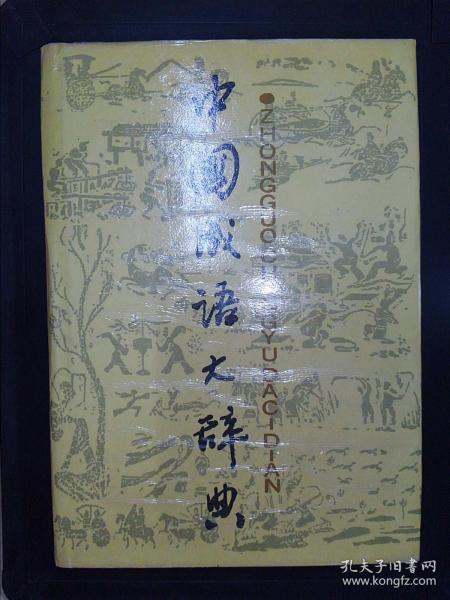 中国成语大辞典
ZHONGGUO CHENGYU DACIDIAN
孔夫子旧书网
www.kongfz.com